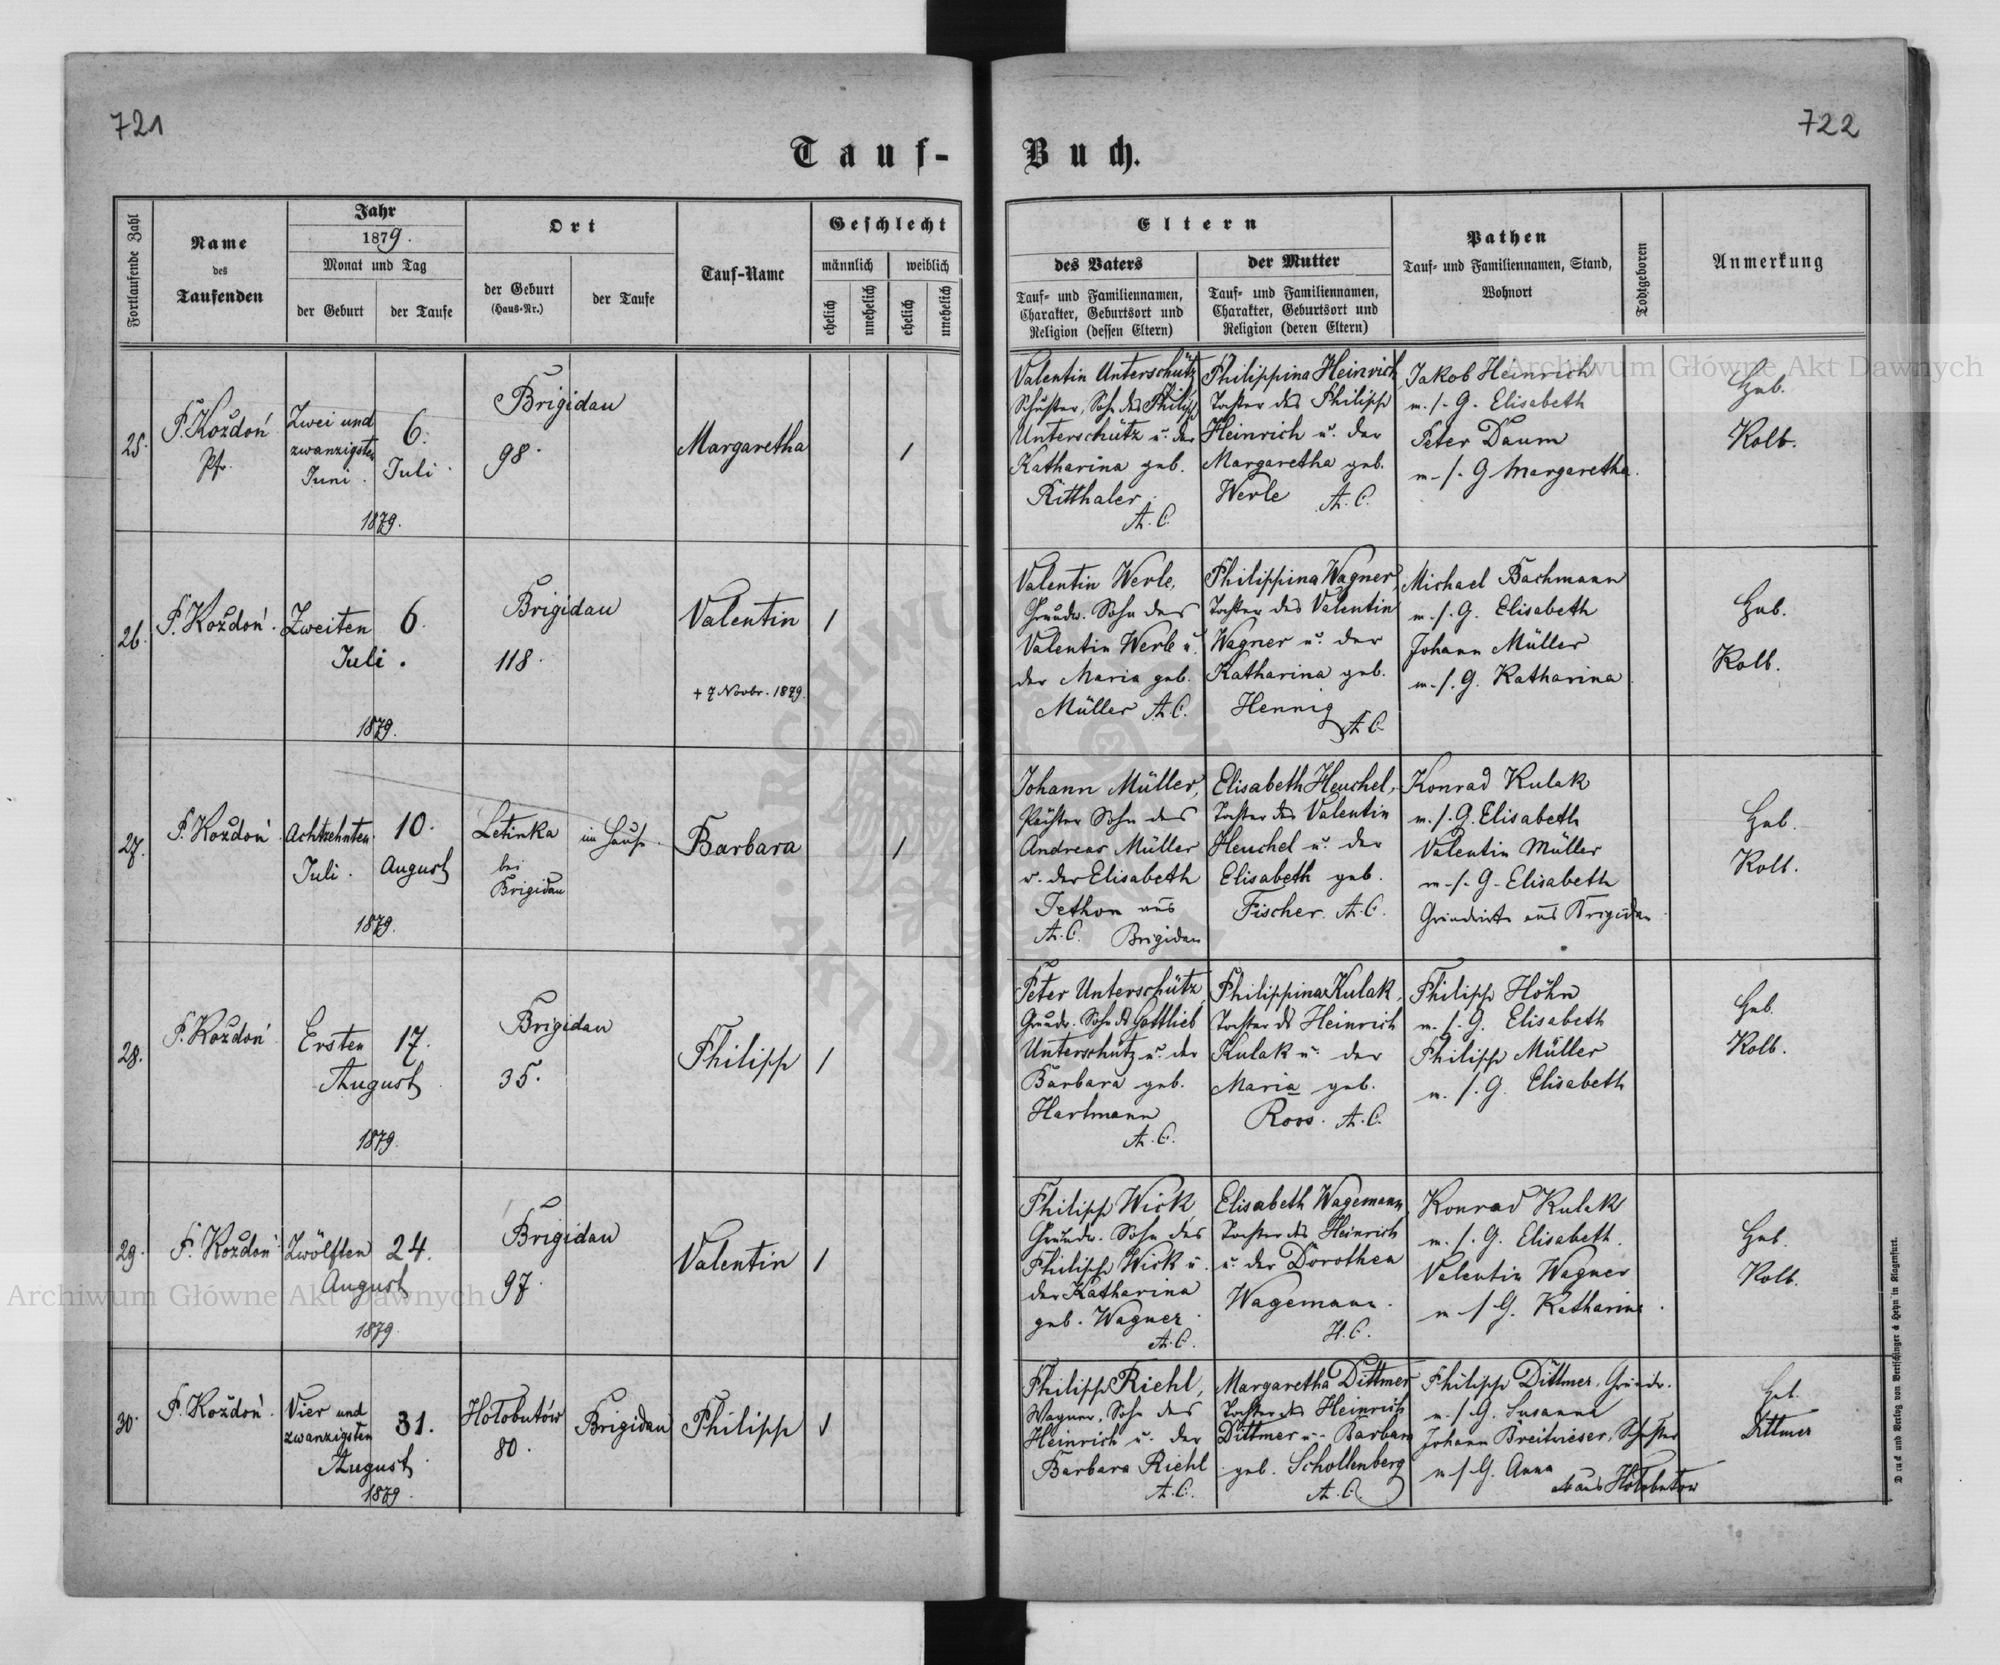 721
722
Tauf-
Buch.
Fortlaufende Zahl
Name
des
Taufenden
Jahr
1879.
Monat und Tag
der Geburt
der Taufe
Ort
der Geburt
(Haus-Nr.)
der Taufe
Tauf-Name
Geschlecht
männlich
weiblich
ehelich
unehelich
ehelich
unehelich
Eltern
des Vaters
Tauf- und Familiennamen,
Charakter, Geburtsort und
Religion (dessen Eltern)
der Mutter
Tauf- und Familiennamen,
Charakter, Geburtsort und
Religion (deren Eltern)
Pathen
Tauf- und Familiennamen, Stand,
Wohnort
Todtgeboren
Anmerkung
25.
P. Koždoń
Pfr.
Zwei und
zwanzigsten
Juni.
6.
Juli.
1879.
Brigidau
98.
Margaretha
1
Valentin Unterschütz
Schuster, Sohn des Philipp
Unterschütz u. der
Katharina geb.
Ritthaler.
A. C.
Philippina Heinrich
Tochter des Philipp
Heinrich u. der
Margaretha geb.
Werle A. C.
Jakob Heinrich
m. s. G. Elisabeth
Peter Daum
m. s. G Margaretha.
Heb.
Kolb.
26.
P. Koždoń.
Zweiten
Juli.
6.
1879.
Brigidau
118.
Valentin
+ 7 Novbr. 1879.
1
Valentin Werle,
Grundw. Sohn des
Valentin Werle u.
der Maria geb.
Müller A. C.
Philippina Wagner,
Tochter des Valentin
Wagner u. der
Katharina geb.
Hennig
A. C.
Michael Bachmann
m. s. G. Elisabeth
Johann Müller
m. s. G. Katharina
Heb.
Kolb.
27.
P. Koždoń
Achtzehnten
Juli.
10.
August
1879.
Letinka
bei
Brigidau
im Hause.
Barbara
1
Johann Müller,
Pächter Sohn des
Andreas Müller
u. der Elisabeth
Jethon aus
A. C. Brigidau
Elisabeth Heuchel,
Tochter des Valentin
Heuchel u. der
Elisabeth geb.
Fischer. A. C.
Konrad Kulak
m. s. G. Elisabeth
Valentin Müller
m. s. G. Elisabeth
Grundwirte aus Brigidau
Heb.
Kolb.
28.
P. Koždoń
Ersten
August
17.
1879.
Brigidau
35.
Philipp
1
Peter Unterschütz
Grundw. Sohn ds Gottlieb
Unterschütz u. der
Barbara geb.
Hartmann
A. C.
Philippina Kulak,
Tochter ds Heinrich
Kulak u. der
Maria geb.
Roos. A. C.
Philipp Höhn
m. s. G. Elisabeth
Philipp Müller
m. s. G. Elisabeth
Heb.
Kolb.
29.
P. Koždoń
Zwölften
August
24.
1879.
Brigidau
97.
Valentin
1
Philipp Wick
Grundw. Sohn des
Philipp Wick u.
der Katharina
geb. Wagner.
A. C.
Elisabeth Wagemann
Tochter des Heinrich
u. der Dorothea
Wagemann.
H. C.
Konrad Kulak
m. s. G. Elisabeth.
Valentin Wagner
m. s. G. Katharina.
Heb.
Kolb.
30.
P. Koždoń.
Vier und
zwanzigsten
August.
31.
1879.
Hołobutów
80.
Brigidau
Philipp
1
Philipp Riehl,
Wagner, Sohn des
Heinrich u. der
Barbara Riehl
A. C.
Margaretha Dittmer
Tochter des Heinrich
Dittmer u. Barbara
geb. Schollenberg
A. C.
Philipp Dittmer, Grundw.
m. s. G. Susanna
Johann Breitwieser, Schuster
m. s. G. Anna
aus Hołobutow
Heb.
Dittmer
Druck und Verlag von Bertschinger & Heyn in Klagenfurt.
Archiwum Główne Akt Dawnych
Archiwum Główne Akt Dawnych